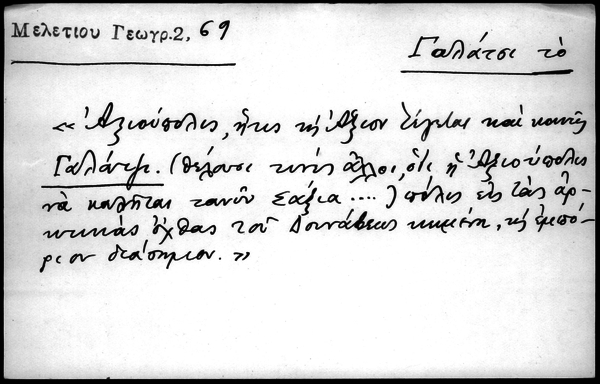 Μελετίου Γεωγρ. 2, 69
Γαλάτσι τὸ
« Ἀξιούπολις, ἥτις κὴ Ἄξιον λέγεται καὶ κοινῶς
Γαλάτζι. (θέλουσι τινὲς ἄλλοι, ὅτι ἡ Ἀξιούπολις
νὰ καλῆται τανῦν Σάξια ....) πόλις εἰς τὰς ἀρ-
κτικὰς ὄχθας τοῦ Δουνάβεως κειμένη, κὴ ἐμπό-
ριον διάσημον. »